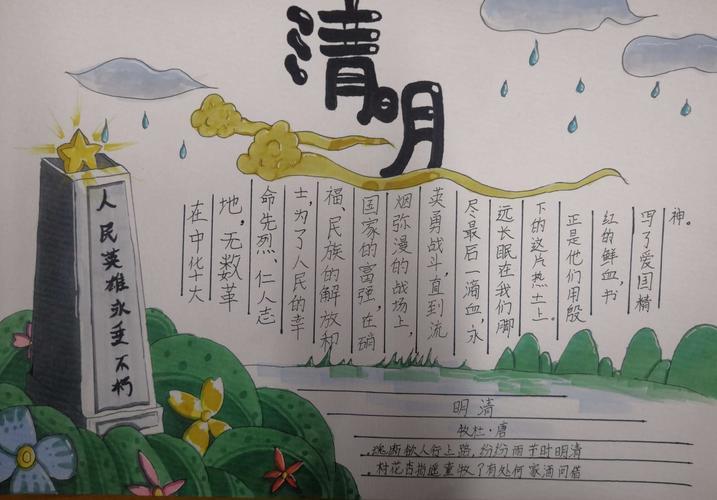 清明
人民英雄永垂不朽
在中化十大
地,无数革
命先烈、仁人志
士,为了人民的幸
福、民族的解放和
国家的富强,在硝
烟弥漫的战场上,
英勇战斗,直到流
尽最后一滴血,永
远长眠在我们脚
下的这片热土上。
正是他们用殷
红的鲜血,书
写了爱国精
神。
明清
牧杜·唐
魂断欲人行上路,纷纷雨节时明清
村花杏指遥童牧有处何家酒问借